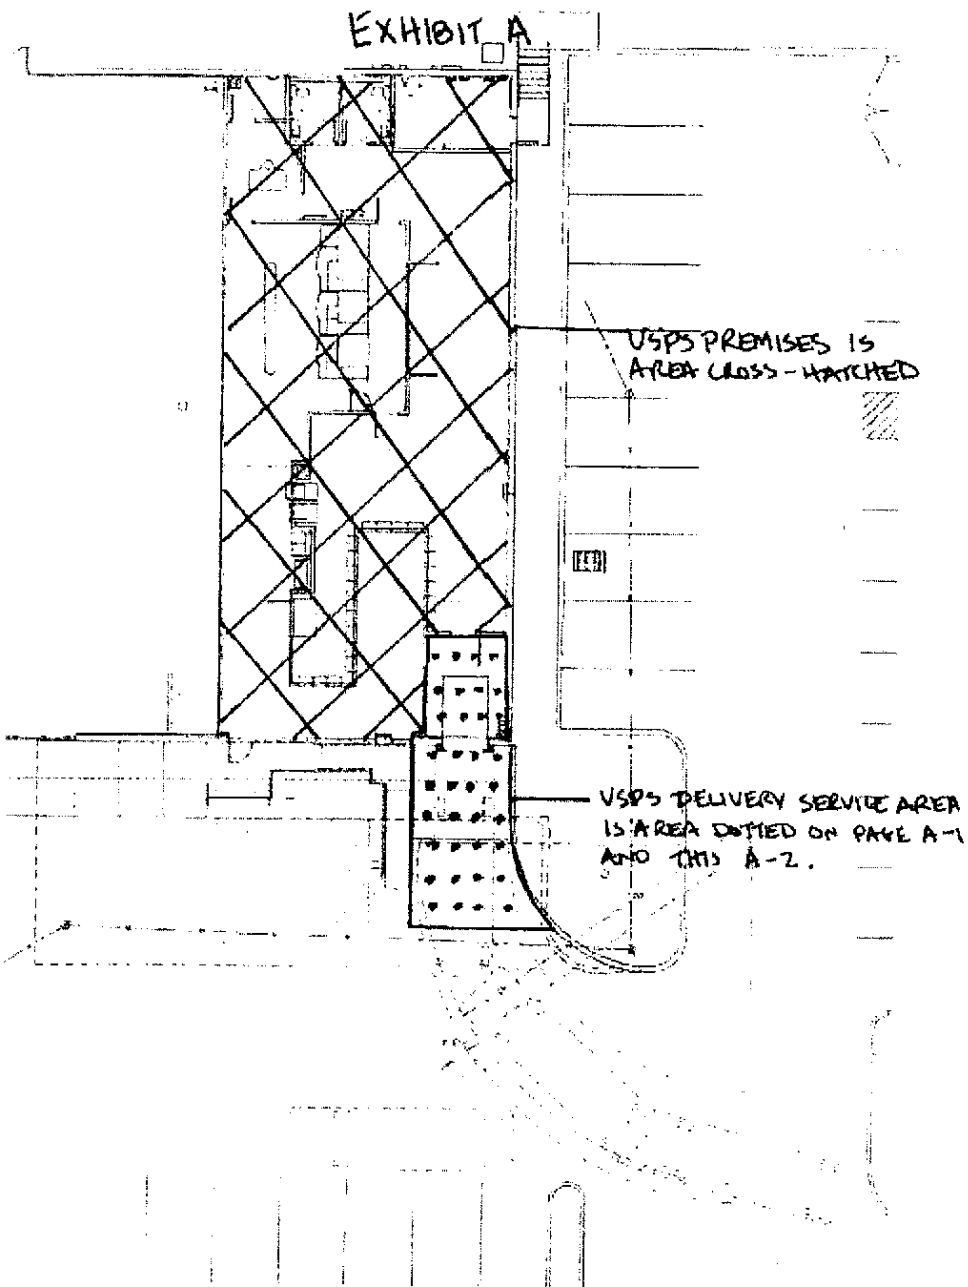 EXHIBIT A
USPS PREMISES IS
AREA CROSS-HATCHED
USPS DELIVERY SERVICE AREA
IS AREA DOTTED ON PAGE A-1
AND THIS A-2.